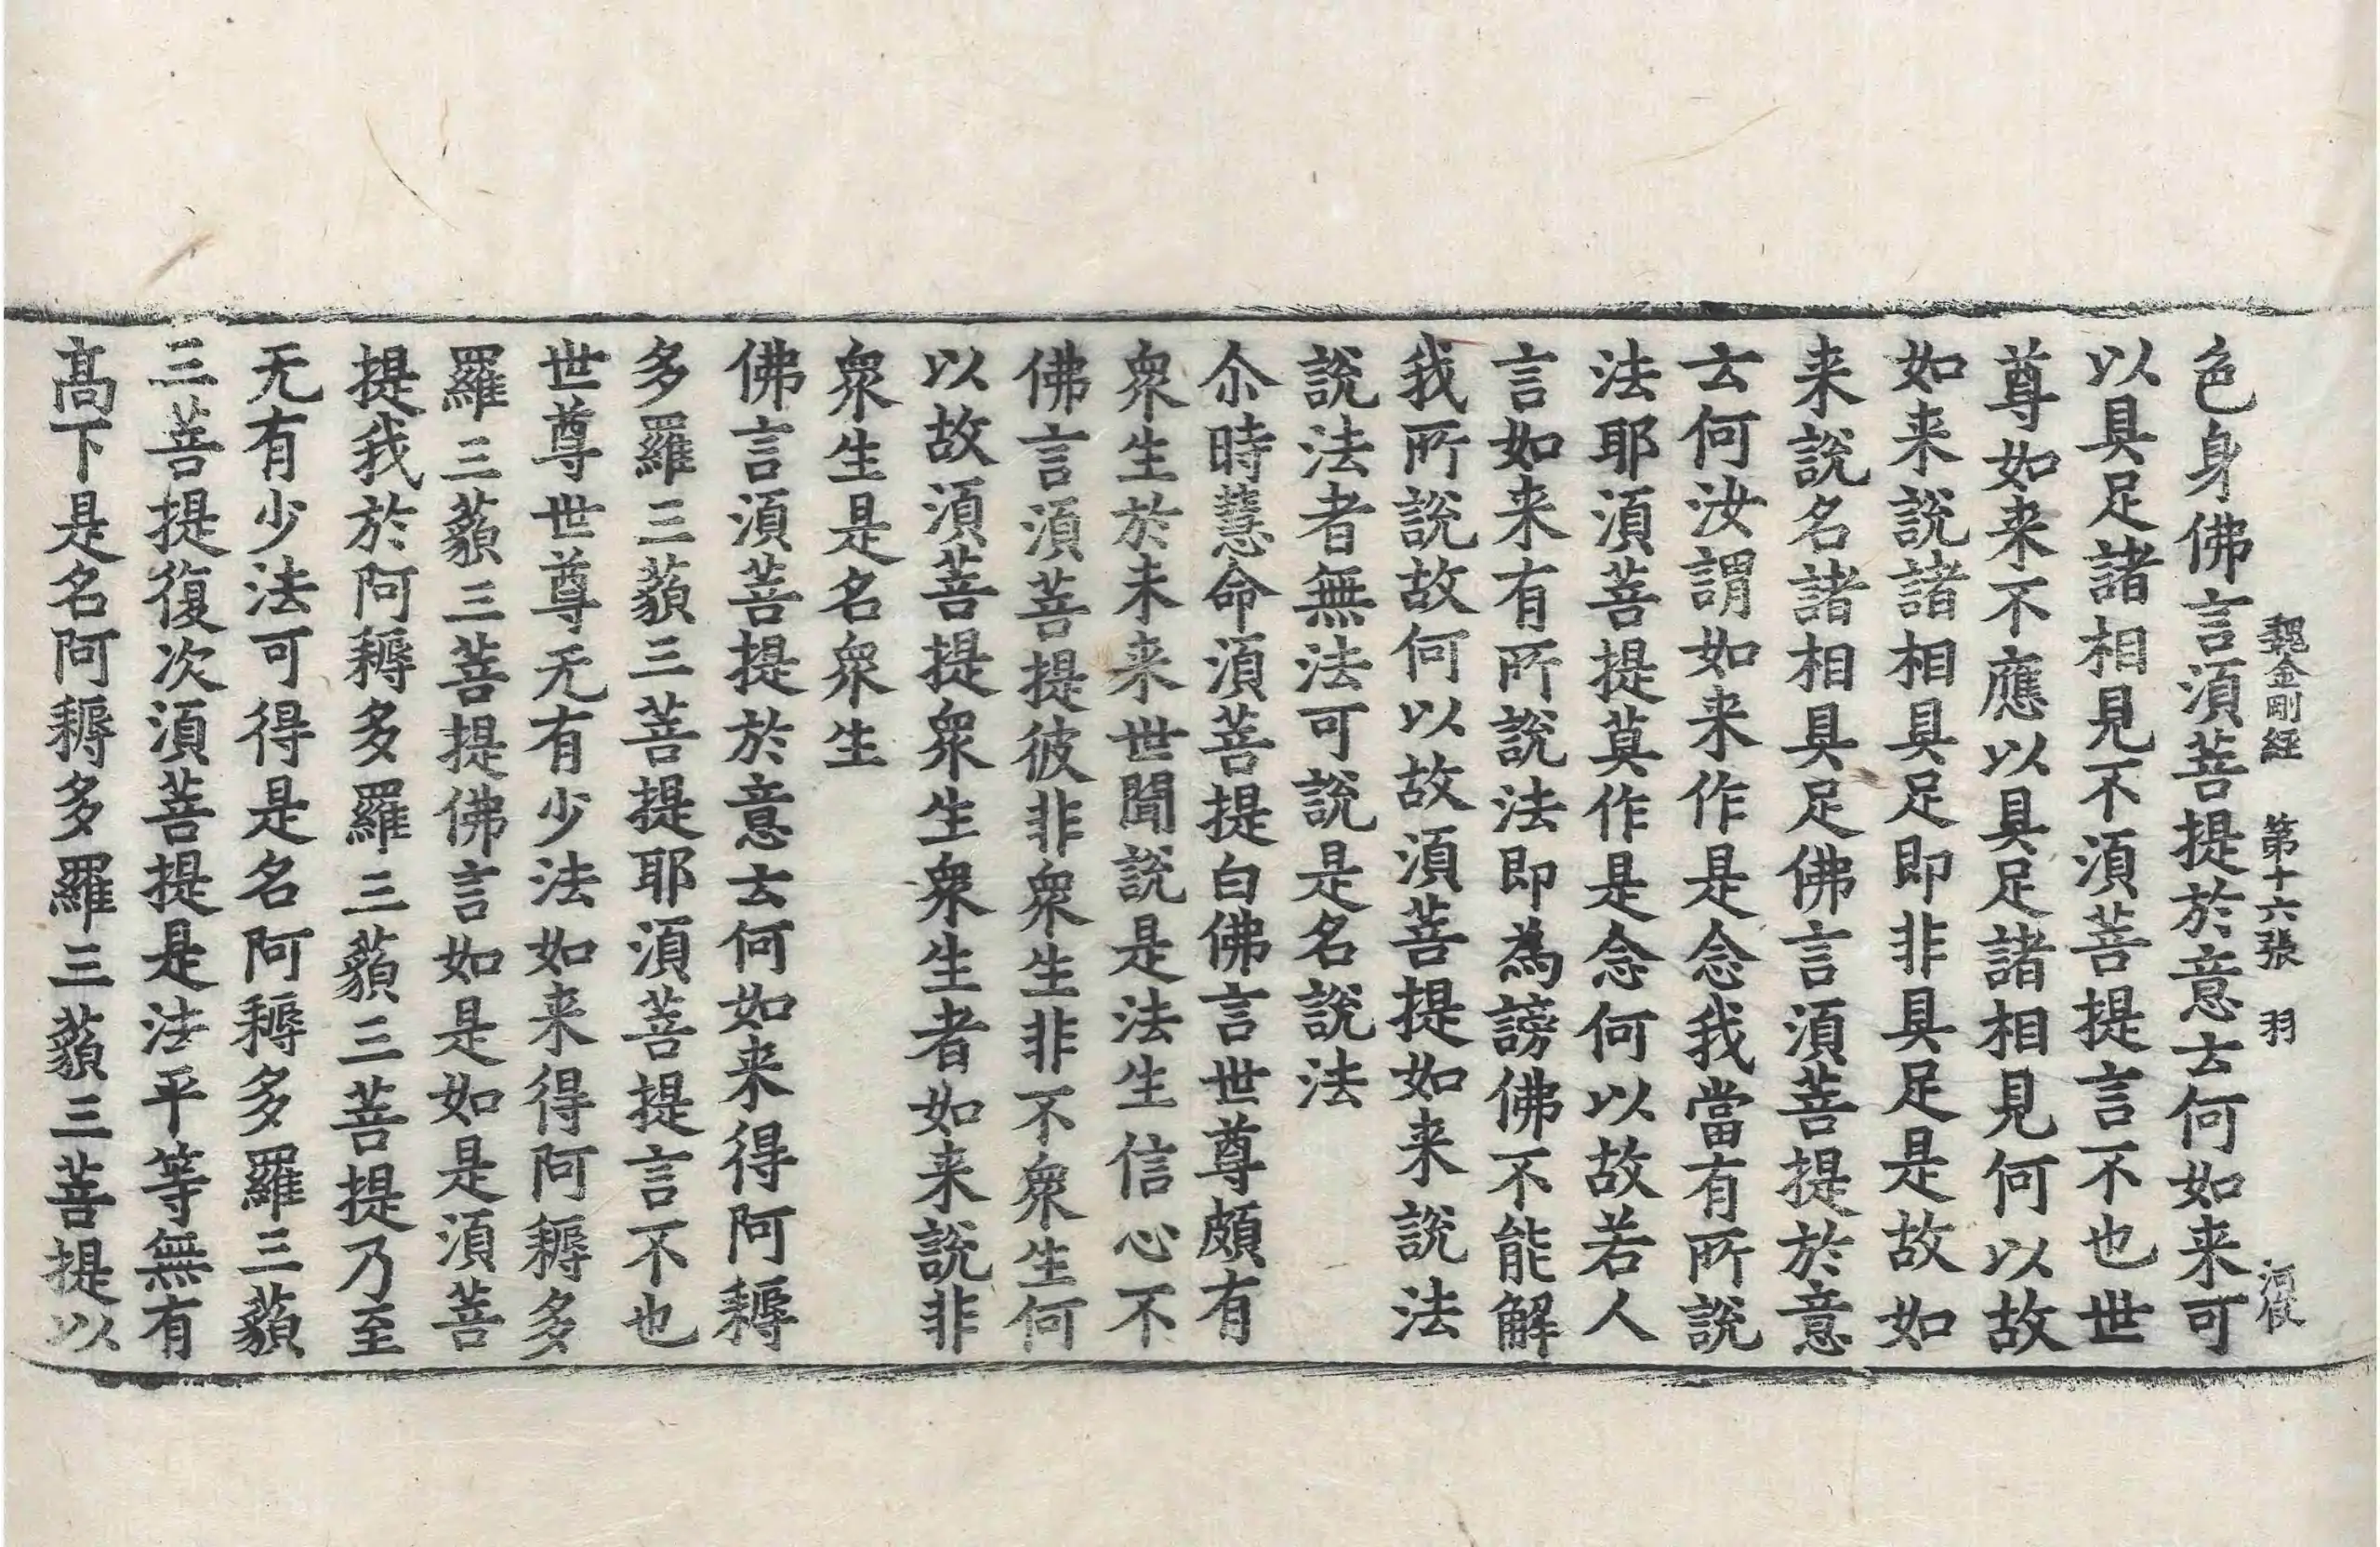 魏金剛経　第十六張　羽
色身佛言湏菩提於意云何如来可
以具足諸相見不湏菩提言不也世
尊如来不應以具足諸相見何以故
如来說諸相具足即非具足是故如
来說名諸相具足佛言湏菩提於意
云何汝謂如来作是念我當有所說
法耶湏菩提莫作是念何以故若人
言如来有所說法即為謗佛不能解
我所說故何以故湏菩提如来說法
說法者無法可說是名說法
尒時慧命湏菩提白佛言世尊頗有
衆生於未来世聞說是法生信心不
佛言湏菩提彼非衆生非不衆生何
以故湏菩提衆生衆生者如来說非
衆生是名衆生
佛言湏菩提於意云何如来得阿耨
多羅三藐三菩提耶湏菩提言不也
世尊世尊无有少法如来得阿耨多
羅三藐三菩提佛言如是如是湏菩
提我於阿耨多羅三藐三菩提乃至
无有少法可得是名阿耨多羅三藐
三菩提復次湏菩提是法平等無有
髙下是名阿耨多羅三藐三菩提以